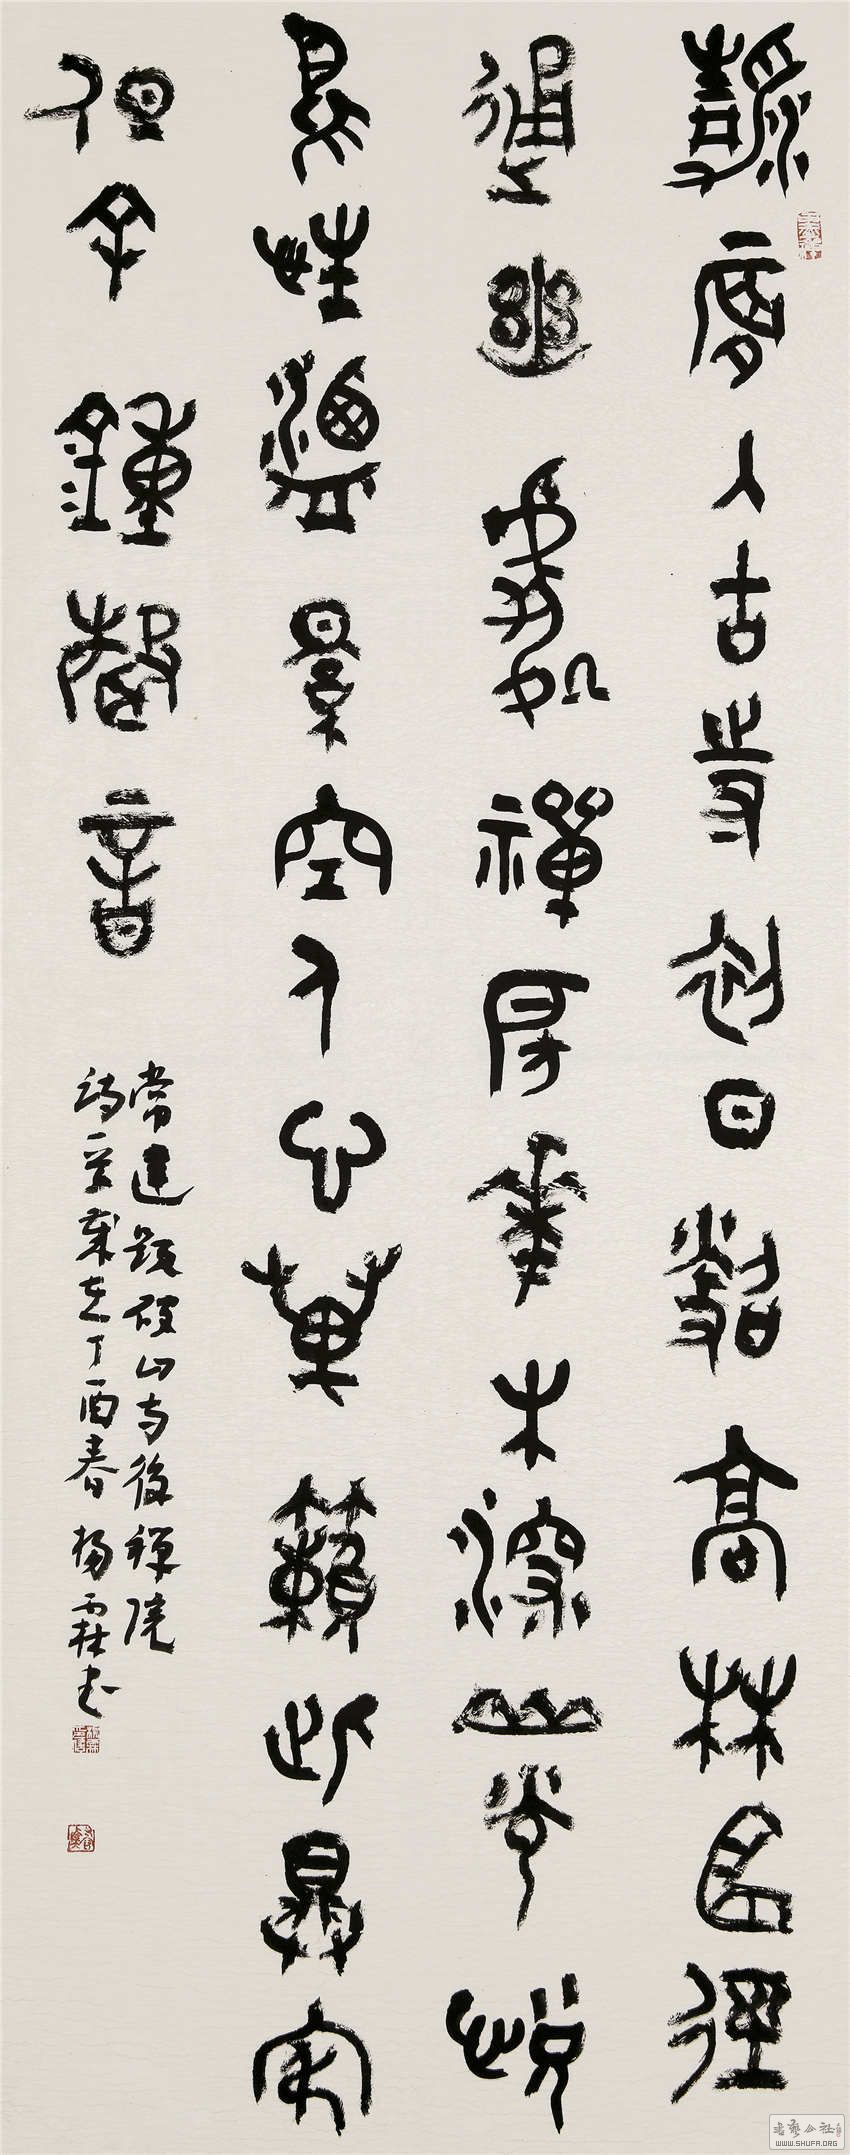 清晨入古寺初日照高林曲徑
通幽處禪房華木深山光悅
鳥性潭景空人心萬籟此具寂
但余鐘磬音
常建題破山寺後禪院
詩一首歲在丁酉春楊霖書
书艺公社
WWW.SHUFA.ORG